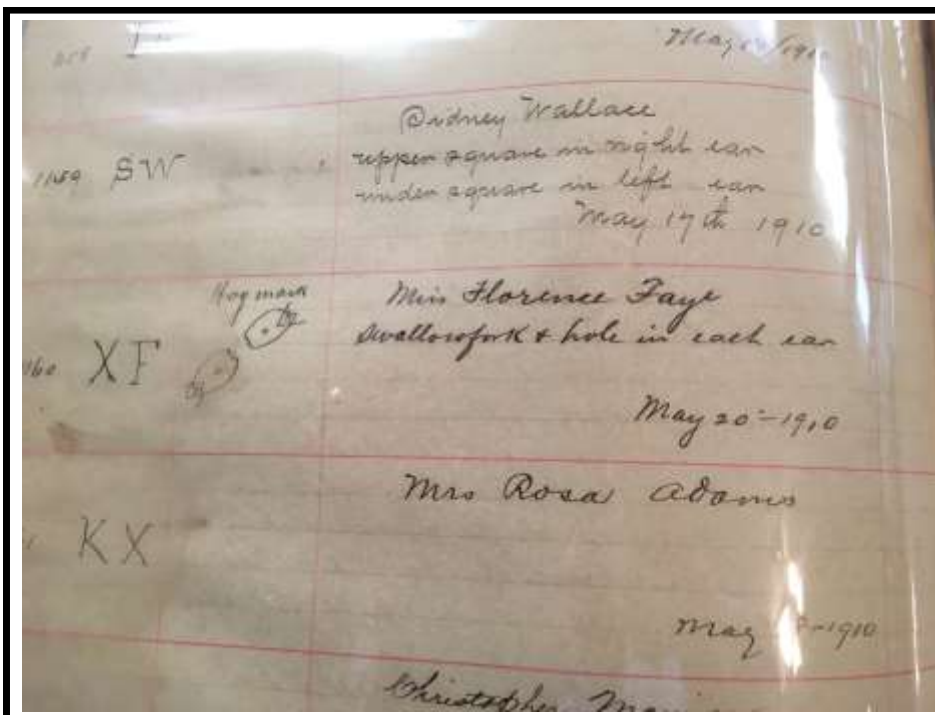 Sidney Wallace
SW
upper square in right ear
under square in left ear
May 17th 1910
Hog mark
Miss Florence Faye
XF
Swallowfork & hole in each ear
May 20-1910
Mrs Rosa Adams
KX
May 1910
Christopher